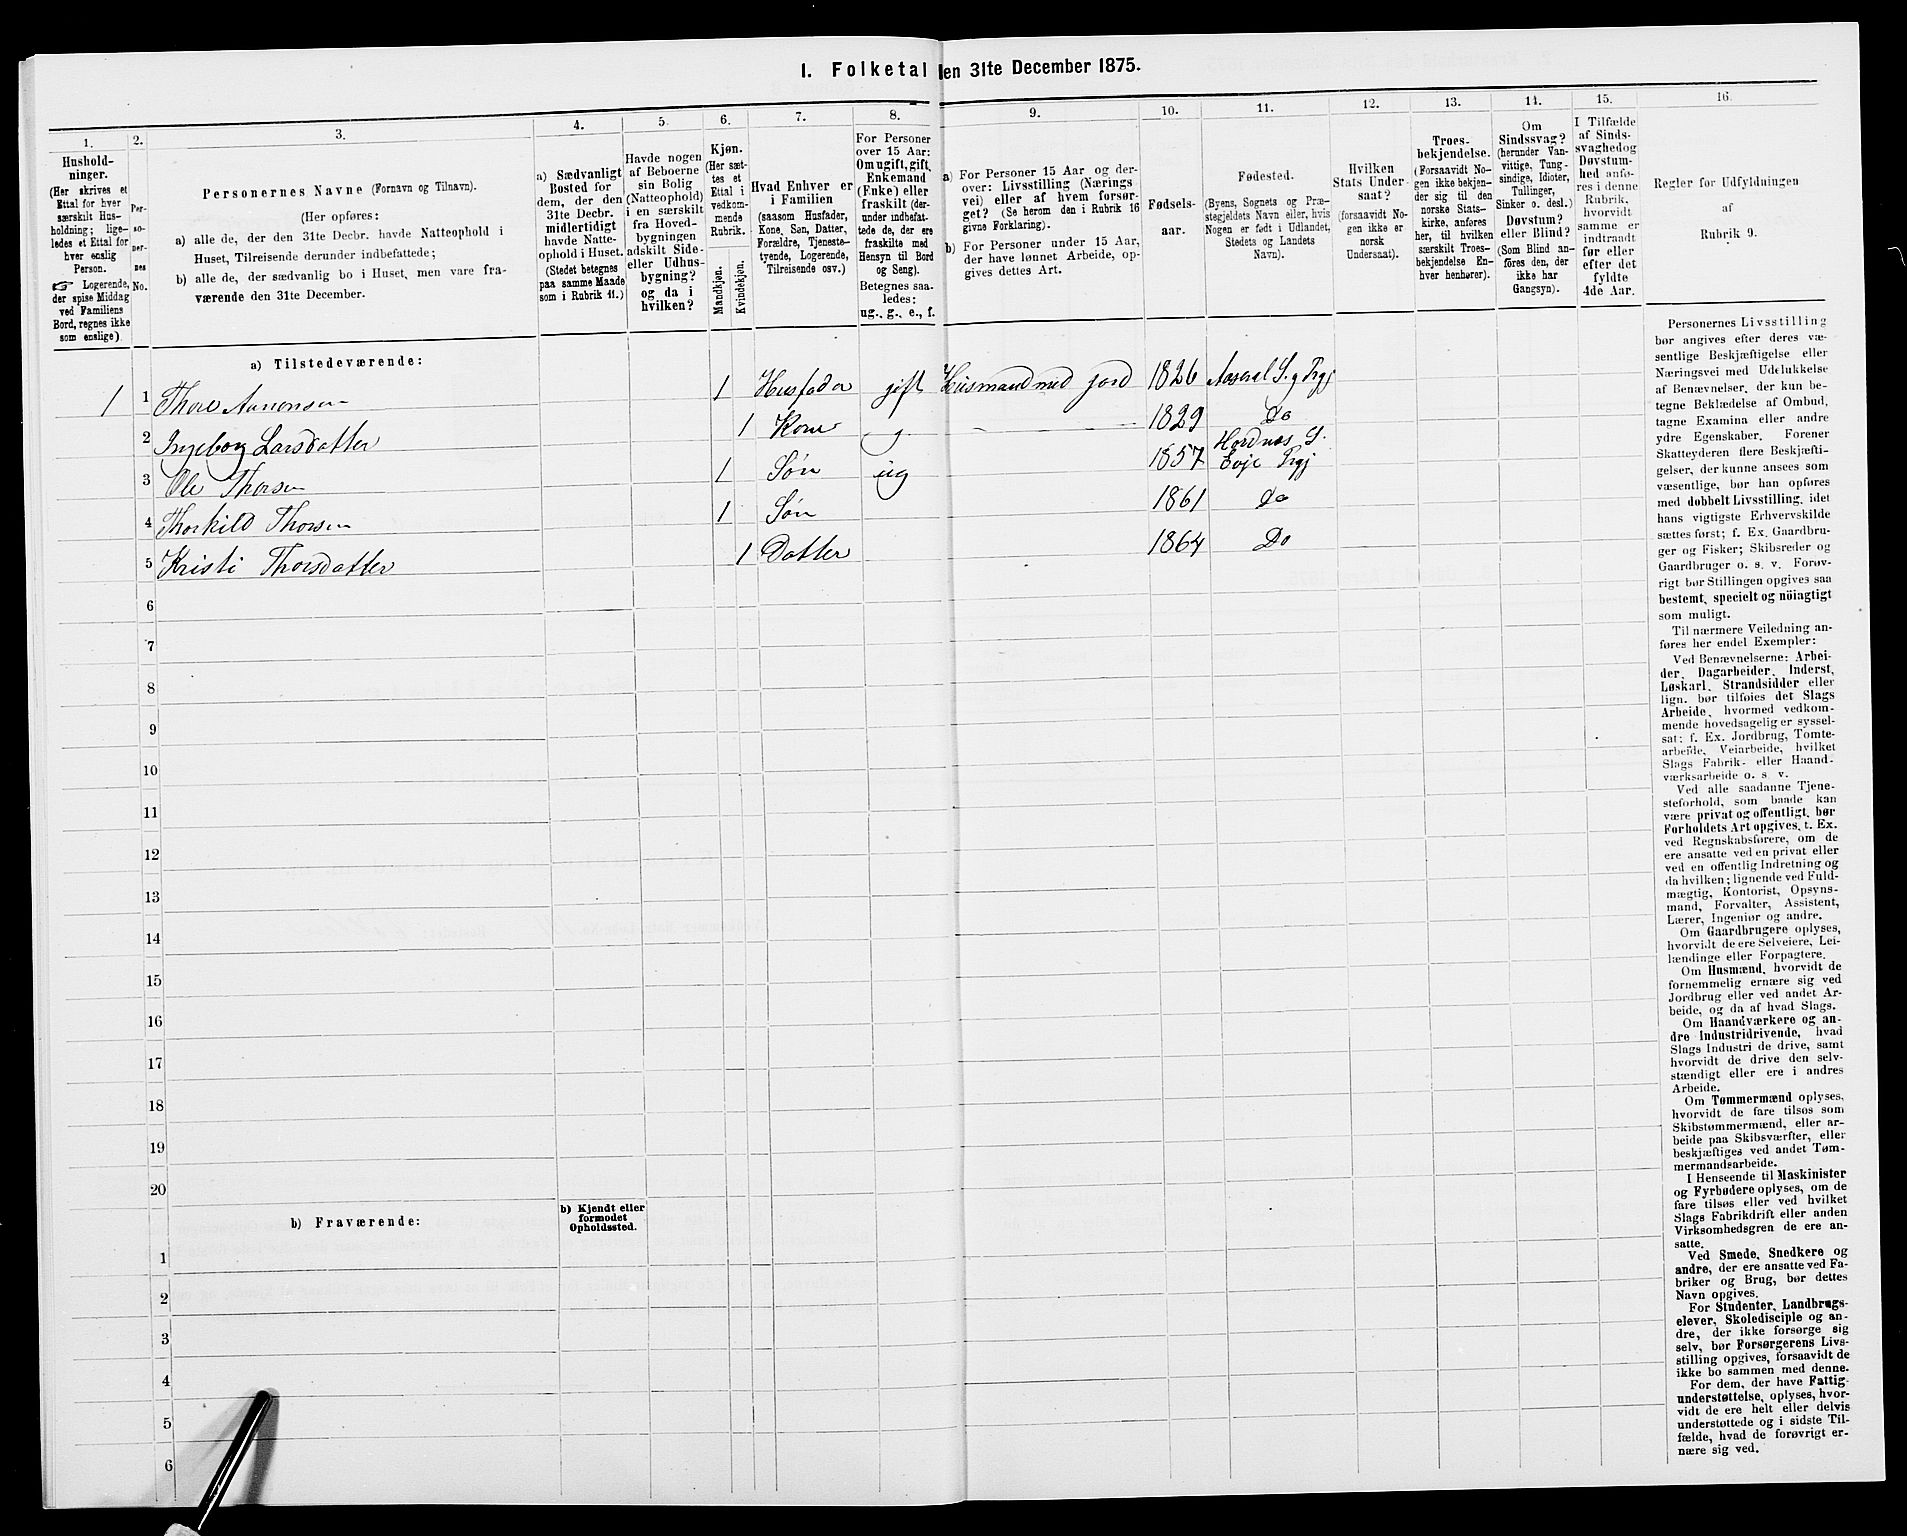 I. Folketal den 31te December 1875.
1.
Hushold-
ninger.
(Her skrives et
Ettal for hver
særskilt Hus-
holdning; lige-
ledes et Ettal for
hver enslig
Person.
☞ Logerende,
der spise Middag
ved Familiens
Bord, regnes ikke
som enslige).
2.
Per-
so-
ner-
nes
No.
3.
Personernes Navne (Fornavn og Tilnavn).
(Her opføres:
a) alle de, der den 31te Decbr. havde Natteophold i
Huset, Tilreisende derunder indbefattede;
b) alle de, der sædvanlig bo i Huset, men vare fra-
værende den 31te December.
4.
a) Sædvanligt
Bosted for
dem, der den
31te Decbr.
midlertidigt
havde Natte-
ophold i Huset.
(Stedet betegnes
paa samme Maade
som i Rubrik 11.)
5.
Havde nogen
af Beboerne
sin Bolig
(Natteophold)
i en særskilt
fra Hoved-
bygningen
adskilt Side-
eller Udhus-
bygning?
og da i
hvilken?
6.
Kjøn.
(Her sæt-
tes et
Ettal i
vedkom-
mende
Rubrik.
Mandkjøn.
Kvindekjøn.
7.
Hvad Enhver er
i Familien
(saasom Husfader,
Kone, Søn, Datter,
Forældre, Tjeneste-
tyende, Logerende,
Tilreisende osv.)
8.
For Personer
over 15 Aar:
Om ugift, gift,
Enkemand
(Enke) eller
fraskilt (der-
under indbefat-
tede de, der ere
fraskilte med
Hensyn til Bord
og Seng).
Betegnes saa-
ledes:
ug., g., e., f.
9.
a) For Personer 15 Aar og der-
over: Livsstilling (Nærings
vei) eller af hvem forsør-
get? (Se herom den i Rubrik 16
givne Forklaring).
b) For Personer under 15 Aar,
der have lønnet Arbeide, op-
gives dettes Art.
10.
Fødsels-
aar.
11.
Fødested.
(Byens, Sognets og Præ-
stegjeldets Navn eller, hvis
Nogen er født i Udlandet,
Stedets og Landets
Navn).
12.
Hvilken
Stats Under-
saat?
(forsaavidt No-
gen ikke er
norsk
Undersaat).
13.
Troes-
bekjendelse.
(Forsaavidt No-
gen ikke bekjen-
der sig til den
norske Stats-
kirke, anføres
her, til hvilken
særskilt Troes-
bekjendelse En-
hver henhører).
14.
Om
Sindssvag?
(herunder Van-
vittige, Tung-
sindige, Idioter,
Tullinger,
Sinker o. desl.)
Døvstum?
eller Blind?
(Som Blind an-
føres den, der
ikke har
Gangsyn).
15.
I Tilfælde
af Sinds-
svaghed og
Døvstum-
hed anfø-
res i denne
Rubrik,
hvorvidt
samme er
indtraadt
før eller
efter det
fyldte
4de Aar.
16.
Regler for Udfyldningen
af
Rubrik 9.
a) Tilstedeværende:
1 1 Thore Aanensen 1 Husfader gift Husmand med jord 1826 Aaseral S. og Prgj
2 Ingeborg Larsdatter 1 Kone g 1829 Do
3 Ole Thorsen 1 Søn ug 1857 Hordnæs S. Evje Prgj
4 Thorkild Thorsen 1 Søn 1861 Do
5 Kristi Thorsdatter 1 Datter 1864 Do
6
7
8
9
10
11
12
13
14
15
16
17
18
19
20
b) Fraværende:
b) Kjendt eller
formodet
Opholdssted.
1
2
3
4
5
6
Personernes Livsstilling
bør angives efter deres væ-
sentlige Beskjæftigelse eller
Næringsvei med Udelukkelse
af Benævnelser, der kun be-
tegne Beklædelse af Ombud,
tagne Examina eller andre
ydre Egenskaber. Forener
Skatteyderen flere Beskjæfti-
gelser, der kunne ansees som
væsentlige, bør han opføres
med dobbelt Livsstilling, idet
hans vigtigste Erhvervskilde
sættes først; f. Ex. Gaardbru-
ger og Fisker; Skibsreder og
Gaardbruger o. s. v. Forøv-
rigt bør Stillingen opgives saa
bestemt, specielt og nöiagtigt
som muligt.
Til nærmere Veiledning an-
føres her endel Exempler:
Ved Benævnelserne: Arbei-
der, Dagarbeider, Inderst,
Løskarl, Strandsidder eller
lign. bør tilføies det Slags
Arbeide, hvormed vedkom-
mende hovedsagelig er syssel-
sat; f. Ex. Jordbrug, Tomte-
arbeide, Veiarbeide, hvilket
Slags Fabrik- eller Haand-
værksarbeide o. s. v.
Ved alle saadanne Tjene-
steforhold, som baade kan
være privat og offentligt, bør
Forholdets Art opgives, t. Ex.
ved Regnskabsførere, om de
ere ansatte ved en privat eller
ved en offentlig Indretning og
da hvilken; lignende ved Fuld-
mægtig, Kontorist, Opsyns-
mand, Forvalter, Assistent,
Lærer, Ingeniør og andre.
Om Gaardbrugere oplyses,
hvorvidt de ere Selveiere, Lei-
lændinge eller Forpagtere.
Om Husmænd, hvorvidt de
fornemmelig ernære sig ved
Jordbrug eller ved andet Ar-
beide, og da af hvad Slags.
Om Haandværkere og an-
dre Industridrivende, hvad
Slags Industri de drive, samt
hvorvidt de drive den selv-
stændigt eller ere i andres
Arbeide.
Om Tømmermænd oplyses,
hvorvidt de fare tilsøs som
Skibstømmermænd, eller ar-
beide paa Skibsværfter, eller
beskjæftiges ved andet Tøm-
mermandsarbeide.
I Henseende til Maskinister
og Fyrbødere oplyses, om de
fare tilsøs eller ved hvilket
Slags Fabrikdrift eller anden
Virksomhedsgren de ere an-
satte.
Ved Smede, Snedkere og
andre, der ere ansatte ved Fa-
briker og Brug, bør dettes
Navn opgives.
For Studenter, Landbrugs-
elever, Skoledisciple og an-
dre, der ikke forsørge sig
selv, bør Forsørgerens Livs-
stilling opgives, forsaavidt de
ikke bo sammen med denne.
For dem, der have Fattig-
understøttelse, oplyses, hvor-
vidt de ere helt eller delvis
understøttede og i sidste Til-
fælde, hvad de forøvrigt er-
nære sig ved.